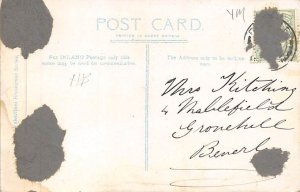 POST CARD.
PRINTED IN GREAT BRITAIN
YM
For INLAND Postage only this
space may be used for communication.
The Address only to be written
here.
Mrs Kitching
4
Grovehill
Beverl